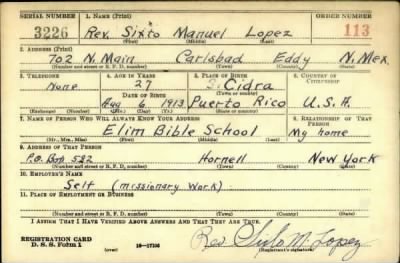 SERIAL NUMBER 1. NAME (Print) ORDER NUMBER
3226 Rev. Sixto Manuel Lopez 113
(First) (Middle) (Last)
2. ADDRESS (Print)
702 N. Main Carlsbad Eddy N. Mex.
(Number and street or R. F. D. number) (Town) (County) (State)
3. TELEPHONE 4. AGE IN YEARS 5. PLACE OF BIRTH 6. COUNTRY OF CITIZENSHIP
None 27 Cidra
DATE OF BIRTH (Town or county)
Aug 6 1913 Puerto Rico U.S.A.
(Exchange) (Number) (Mo.) (Day) (Yr.) (State or country)
7. NAME OF PERSON WHO WILL ALWAYS KNOW YOUR ADDRESS 8. RELATIONSHIP OF THAT PERSON
Elim Bible School My home
(Mr., Mrs., Miss) (First) (Middle) (Last)
9. ADDRESS OF THAT PERSON
P.O. Box 522 Hornell New York
(Number and street or R. F. D. number) (Town) (County) (State)
10. EMPLOYER'S NAME
Self (missionary work)
11. PLACE OF EMPLOYMENT OR BUSINESS
(Number and street or R. F. D. number) (Town) (County) (State)
I AFFIRM THAT I HAVE VERIFIED ABOVE ANSWERS AND THAT THEY ARE TRUE.
REGISTRATION CARD
D. S. S. Form 1 (over) 16—17105 Rev. Sixto M. Lopez
(Registrant's signature)